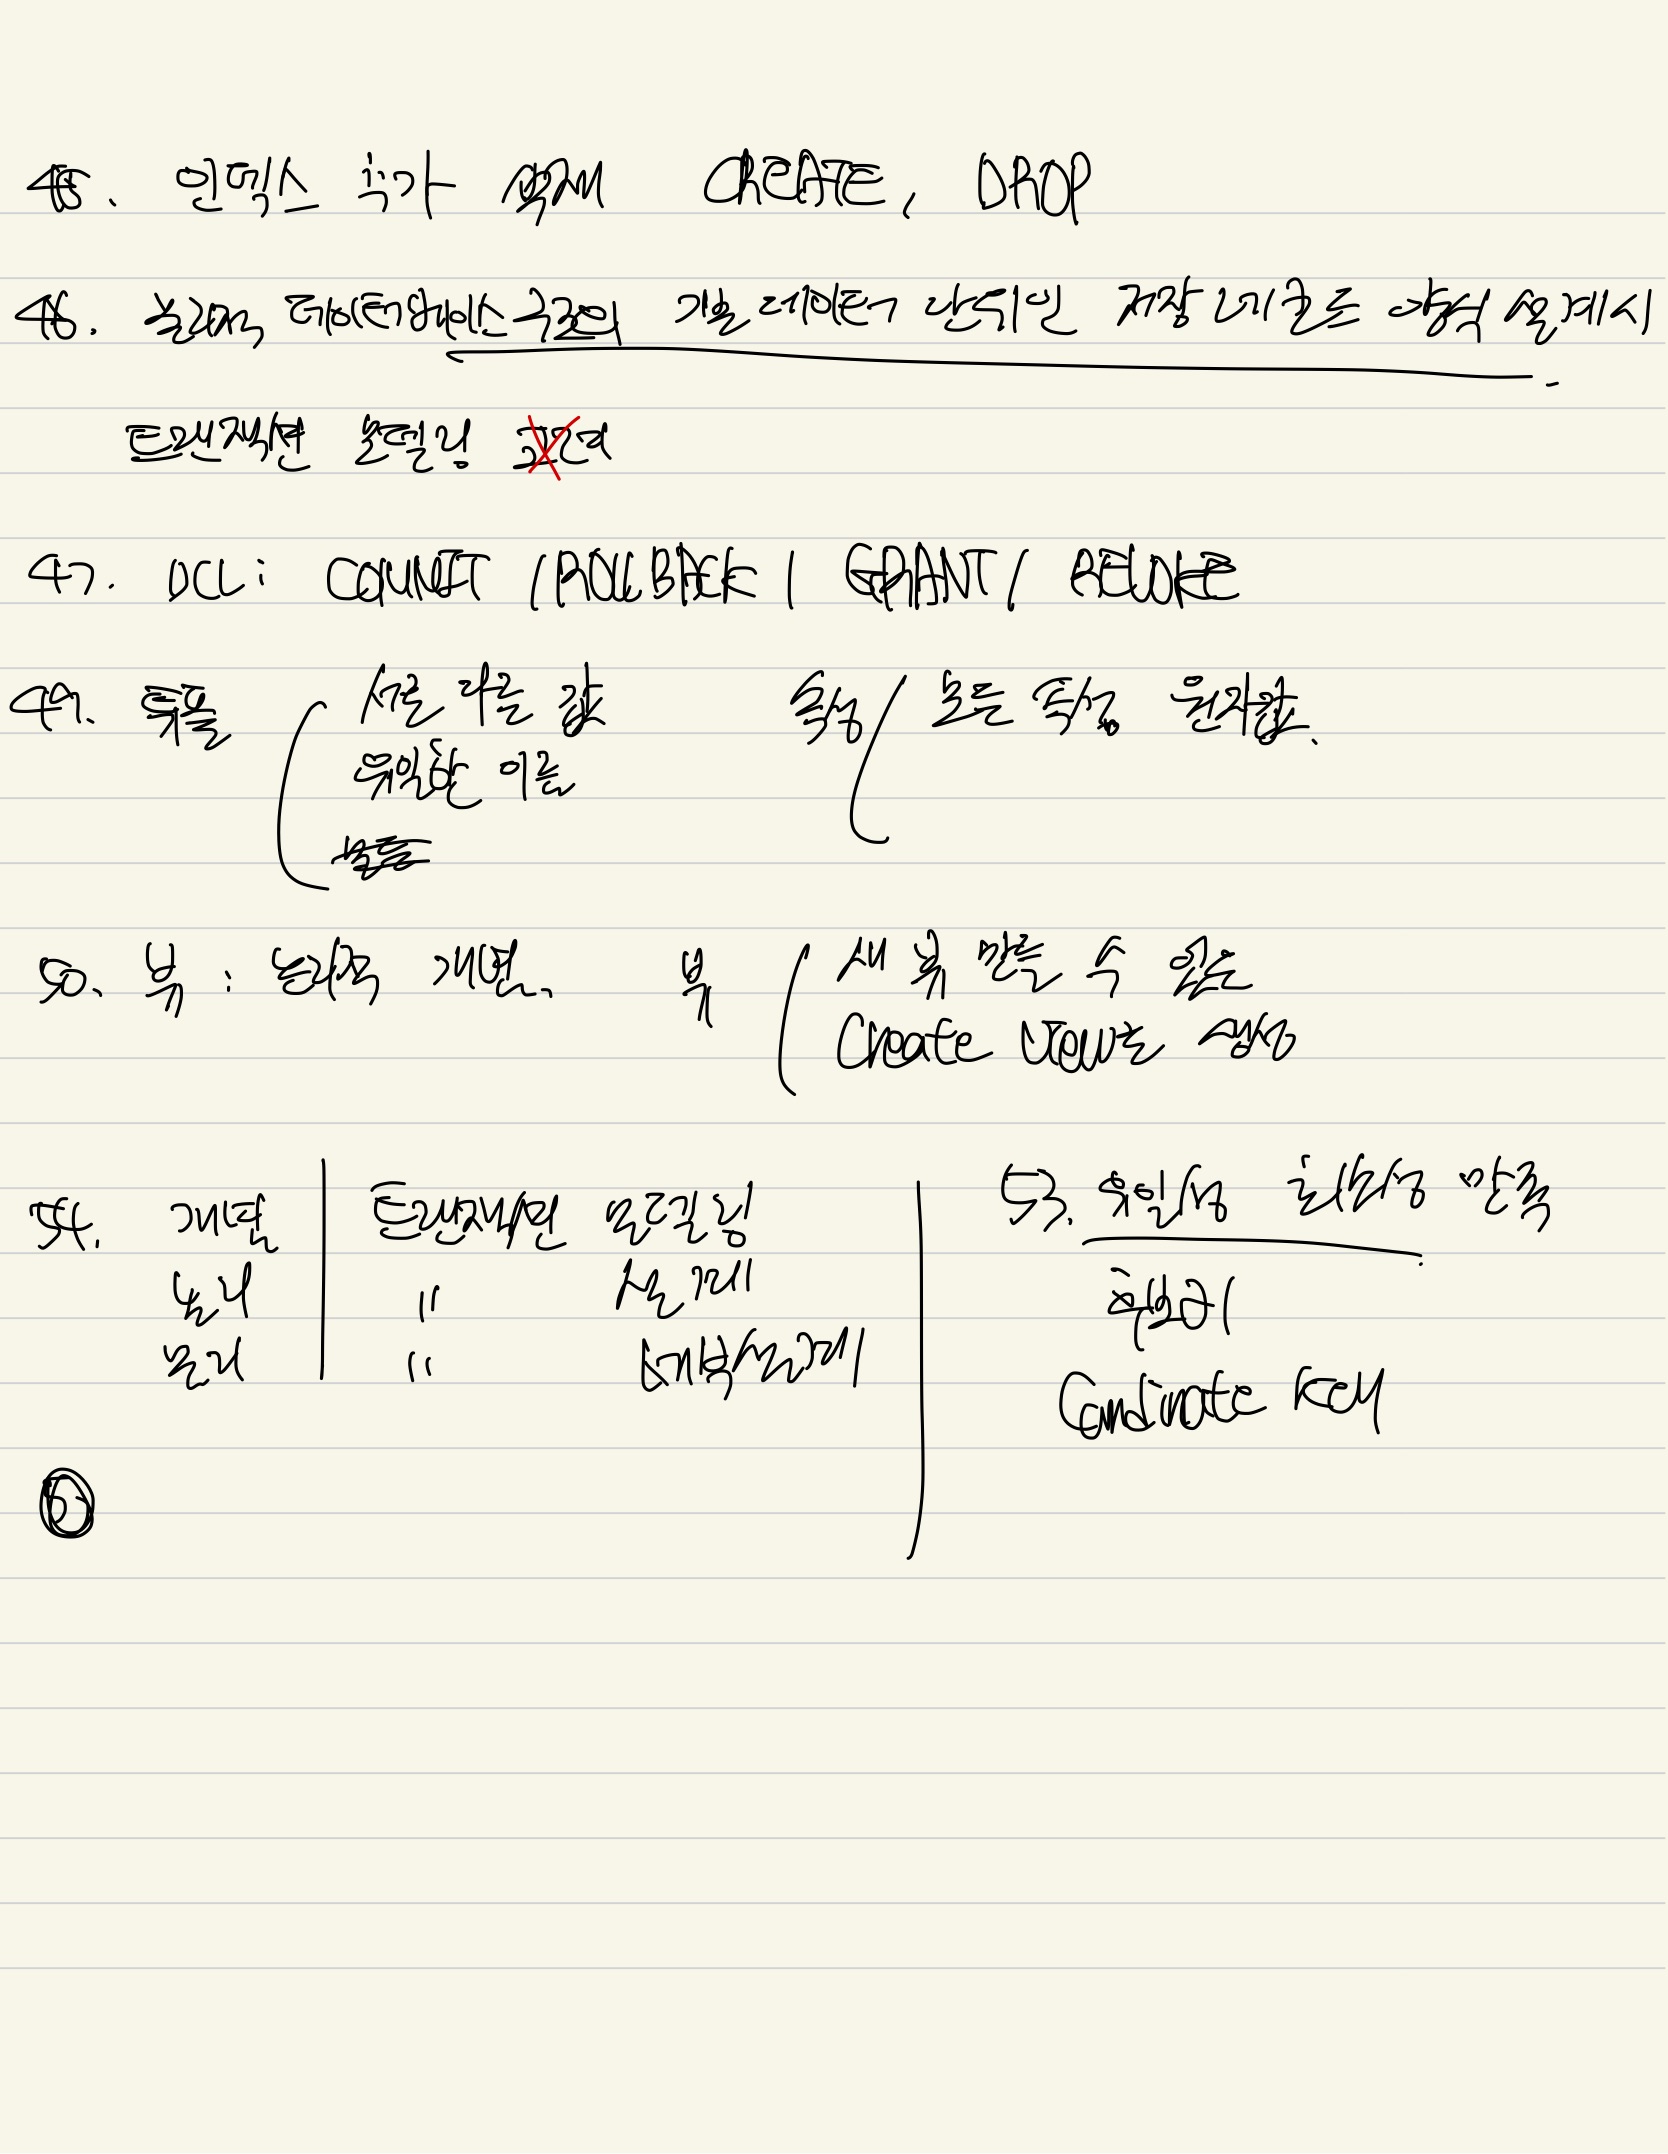 45. 인덱스 추가 삭제 CREATE, DROP
46. 물리적 데이터베이스 구조의 기본 데이터 단위인 저장 레코드 양식 설계시
트랜잭션 모델링 고려
47. DCL: COMMIT / ROLLBACK / GRANT / REVOKE
49. 튜플 서로 다른 값 속성 모든 속성 원자값.
유일한 이름
모든
50. 뷰 : 논리적 개념. 뷰 새 뷰 만들 수 있는
Create View로 생성
54. 개념 트랜잭션 모델링
논리 " 설계
물리 " 세부설계
53. 유일성 최소성 만족
후보키
Candinate Key